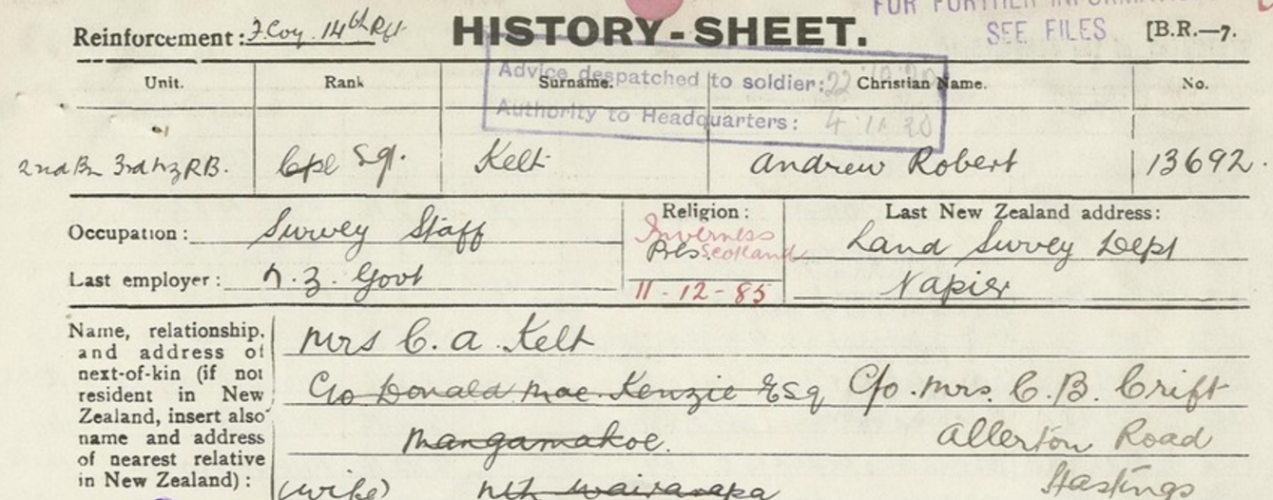 FOR FURTHER INFORMA
SEE FILES.
Reinforcement: J. Coy. 14th Rft. HISTORY-SHEET. [B.R.—7.
Advice despatched to soldier: 22.10.20
Authority to Headquarters: 4.11.20
Unit. Rank Surname. Christian Name. No.
2nd Bn 3rd NZRB. Cpl Sgt. Kelt Andrew Robert 13692.
Religion: Last New Zealand address:
Occupation: Survey Staff Inverness Scotland Pres. Land Survey Dept
Last employer: N.Z. Govt 11-12-85 Napier
Name, relationship, and address of next-of-kin (if not resident in New Zealand, insert also name and address of nearest relative in New Zealand):
Mrs C. A. Kelt
C/o Donald MacKenzie Esq C/o Mrs. C. B. Crift
Mangamahoe. Allerton Road
(wife) Nth Wairarapa Hastings